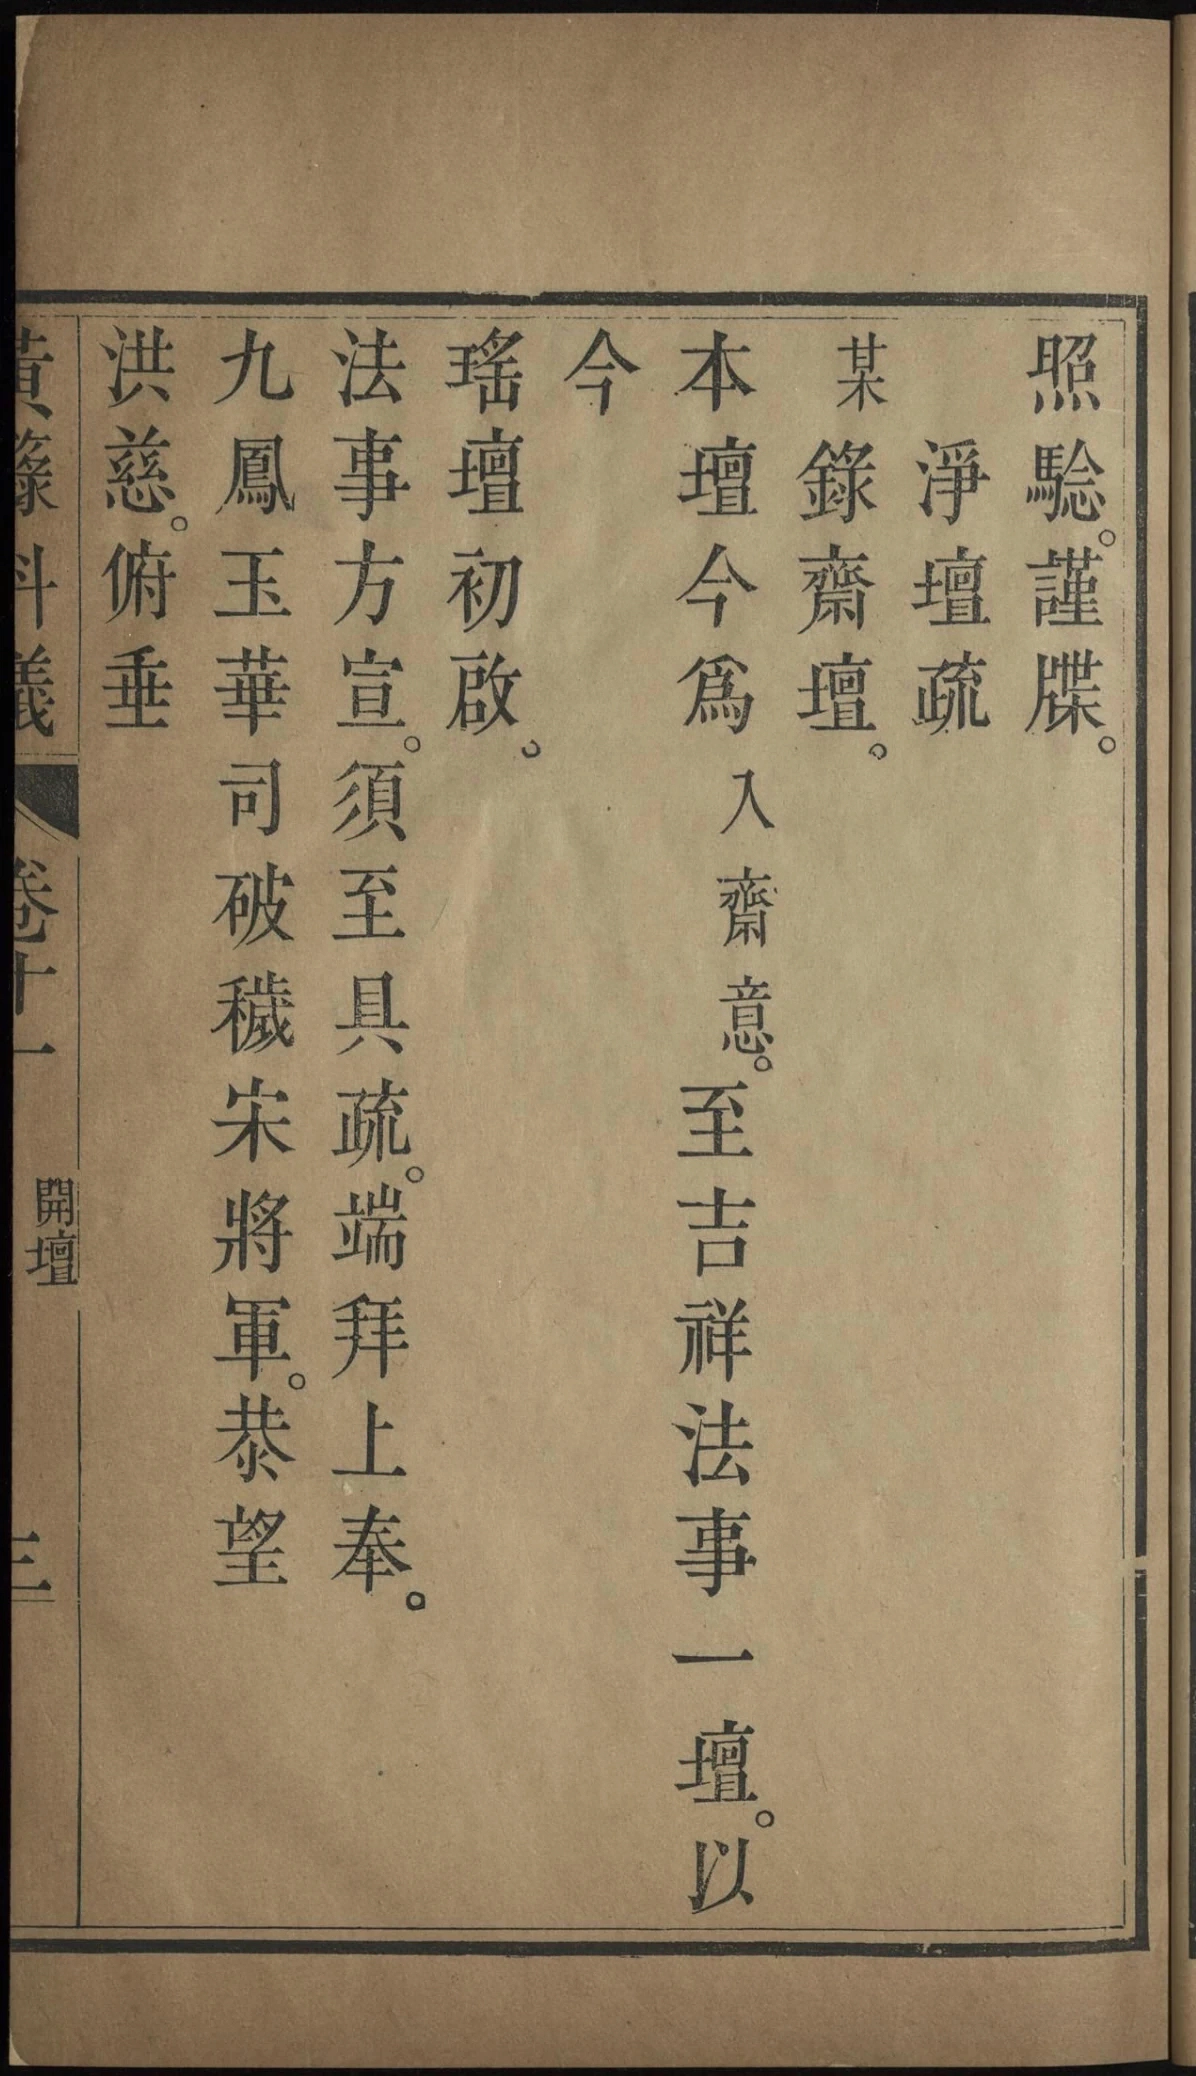 照騐。謹牒。
淨壇疏
某錄齋壇。
本壇今爲入齋意。至吉祥法事一壇。以
今
瑤壇初啟。
法事方宣。須至具疏。端拜上奉。
九鳳玉華司破穢宋將軍。恭望
洪慈。俯垂
黃籙科儀 卷十一 開壇 三